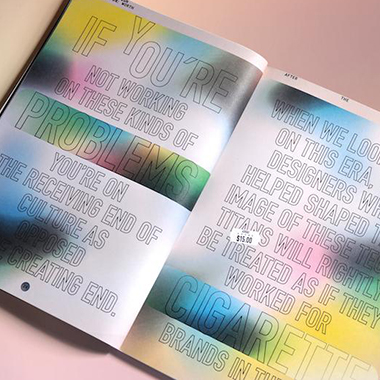 IF YOU'RE
NOT WORKING
ON THESE KINDS OF
PROBLEMS
YOU'RE ON
THE RECEIVING END OF
CULTURE AS
OPPOSED
CREATING END.
AFTER THE
WHEN WE LOOK
ON THIS ERA,
DESIGNERS
HELPED SHAPED
IMAGE OF THESE
TITANS WILL RIGHTLY
BE TREATED AS IF THEY
WORKED FOR
$15.00
CIGARETTE
BRANDS IN